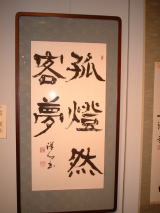 孤燈然
客夢